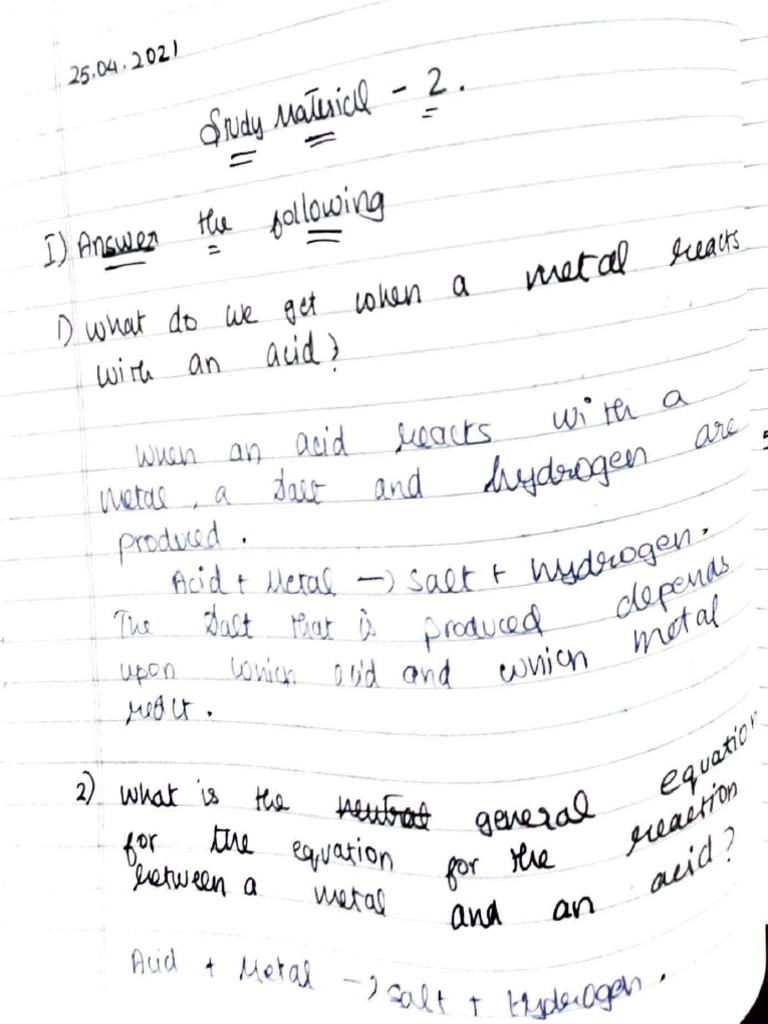 25.04.2021
Study Material - 2.
I) Answer the following
1) What do we get when a metal reacts
with an acid?
When an acid reacts with a
metal, a salt and hydrogen are
produced.
Acid + Metal → Salt + Hydrogen.
The salt that is produced depends
upon which acid and which metal
react.
2) What is the neutral general equation
for the equation for the reaction
between a metal and an acid?
Acid + Metal → Salt + Hydrogen.